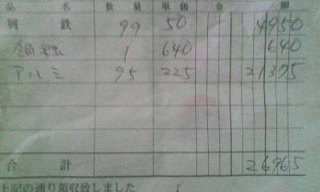 品 名 数量 単価 金 額
鋼鉄 99 50 4950
銅線 1 640 640
アルミ 95 225 21375
合 計 26965
上記の通り領収致しました